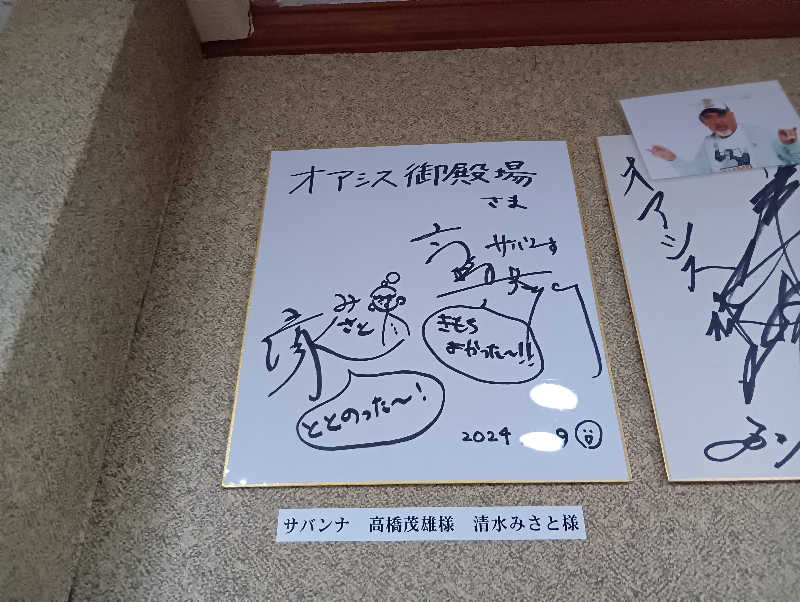 オアシス御殿場
さま
サバンナ
高橋
みさと
きもち
よかった〜!!
ととのった〜!
2024 9
サバンナ 高橋茂雄様 清水みさと様
オアシス